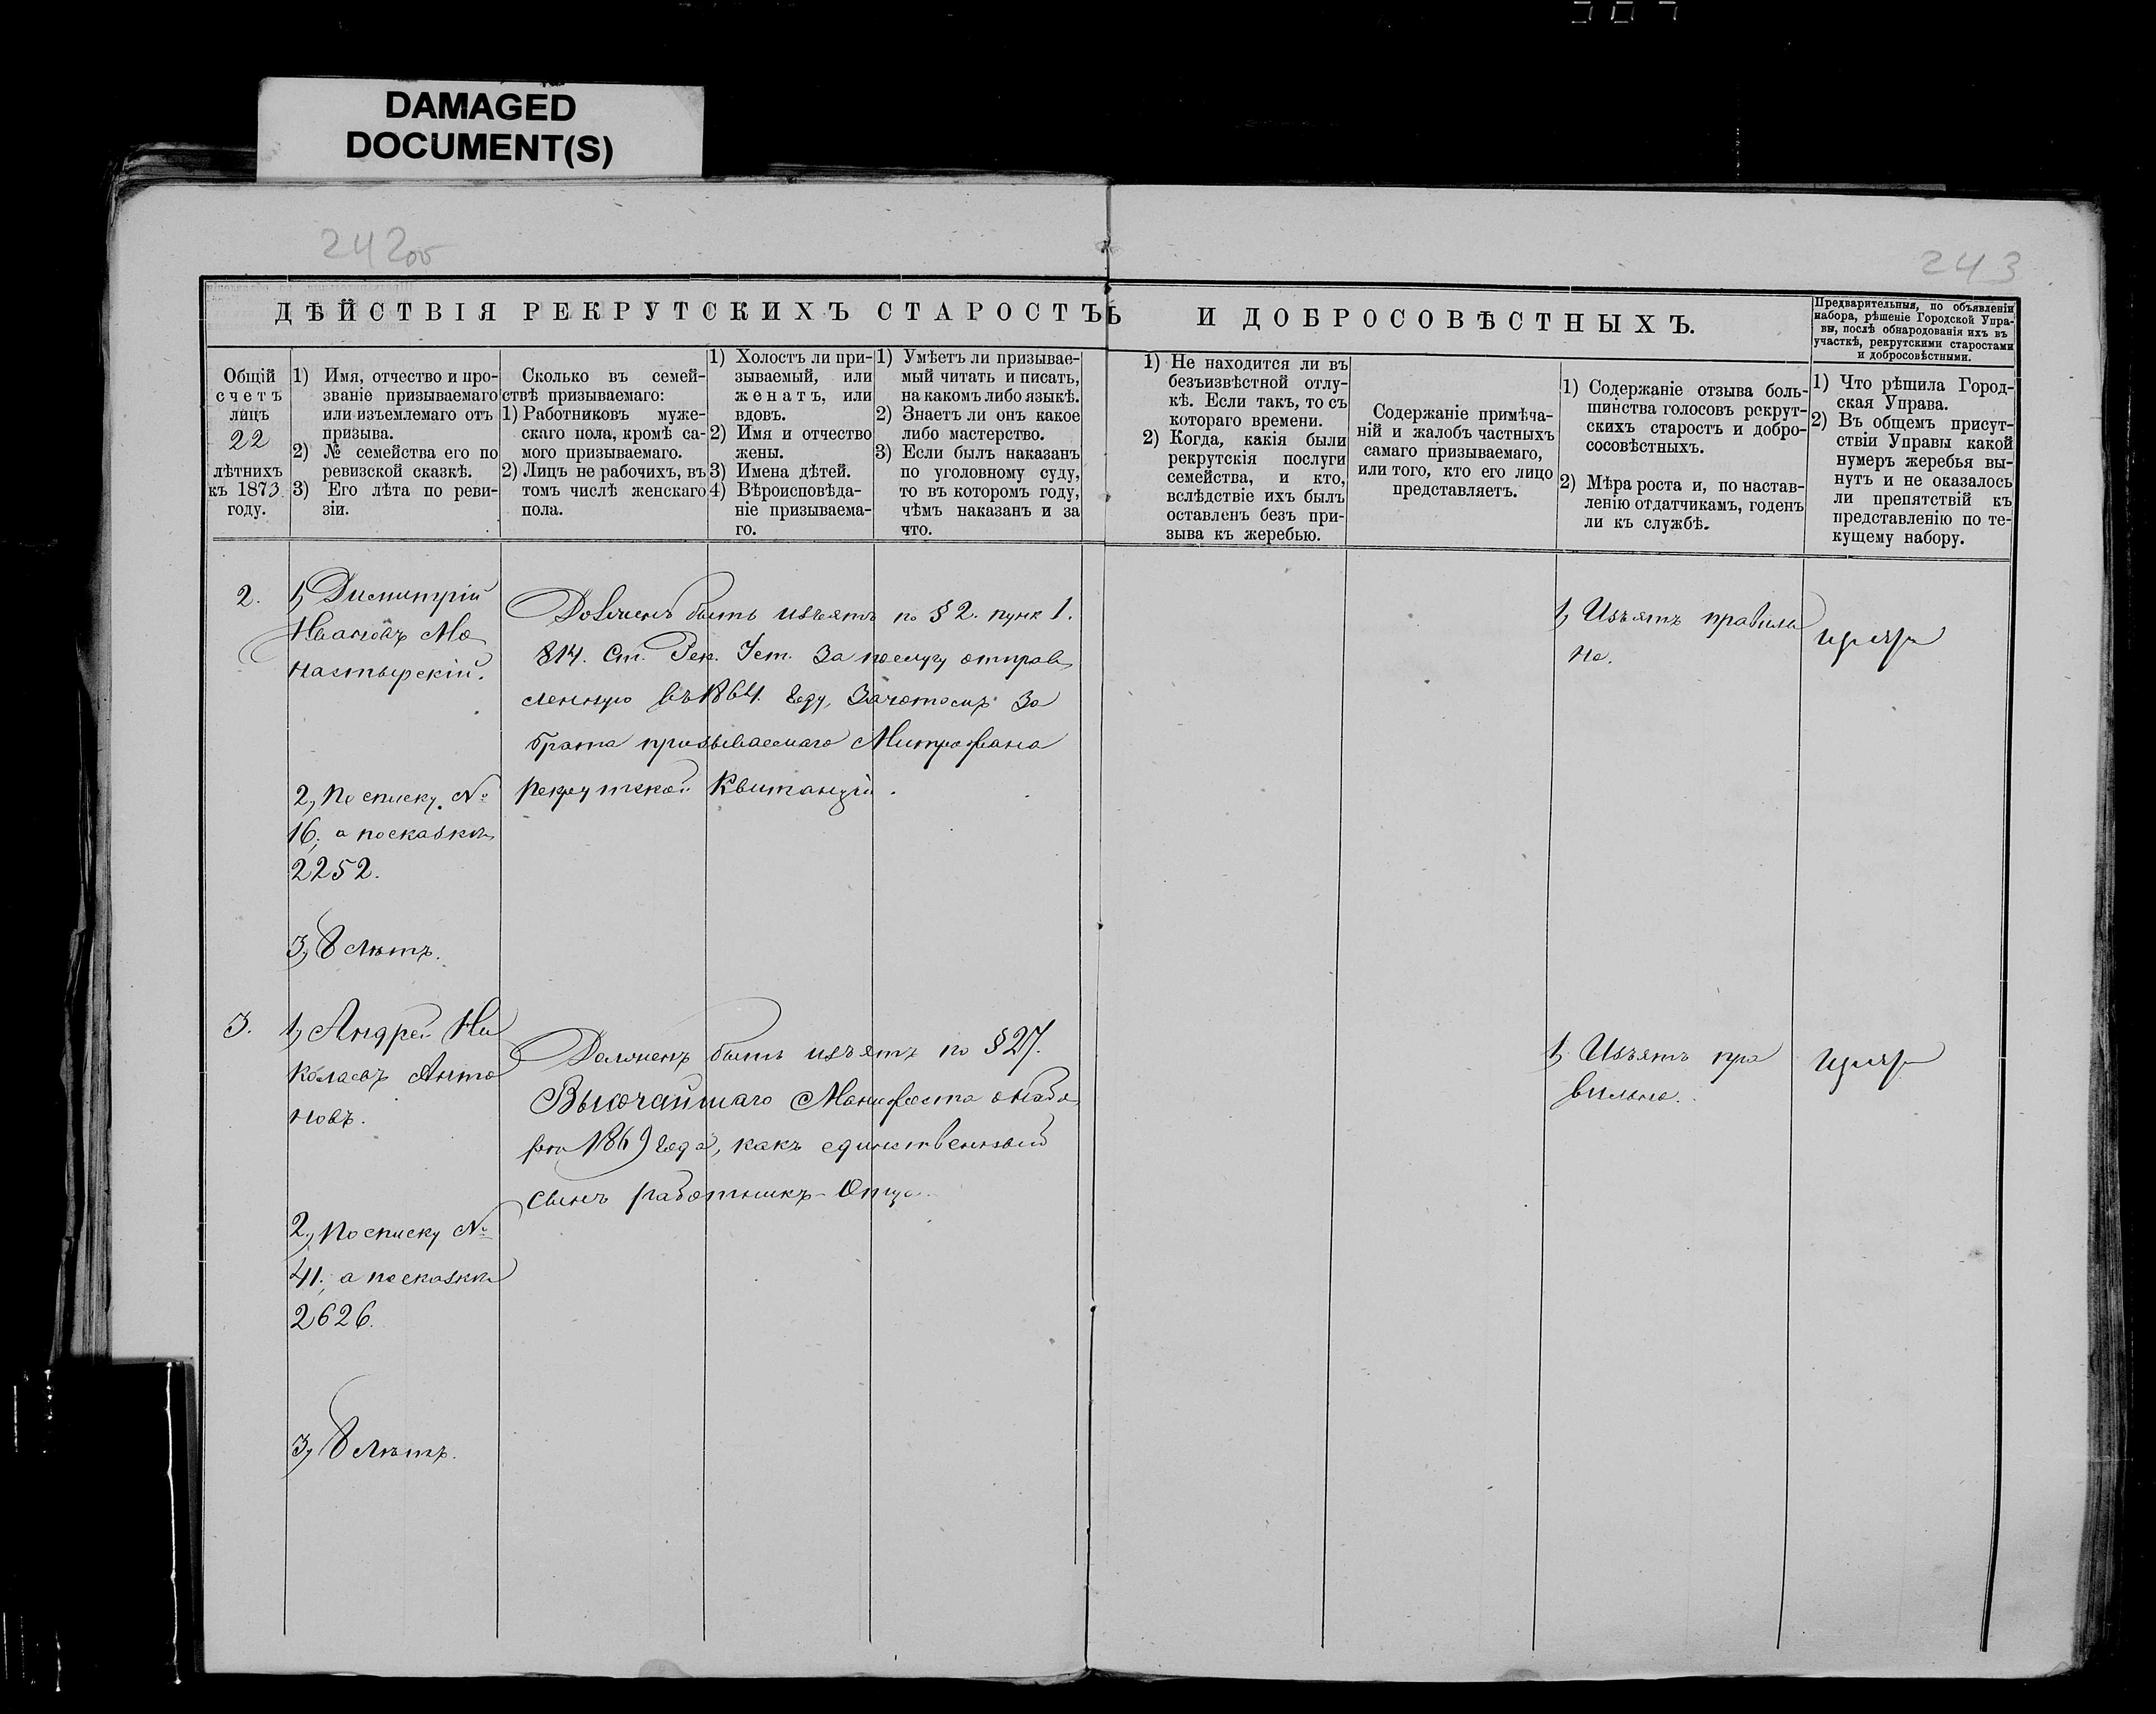 DAMAGED
DOCUMENT(S)
242об
243
ДѢЙСТВІЯ РЕКРУТСКИХЪ СТАРОСТЪ
И ДОБРОСОВѢСТНЫХЪ.
Предварительныя, по объявленіи
набора, рѣшеніе Городской Упра-
вы, послѣ обнародованія ихъ въ
участкѣ, рекрутскими старостами
и добросовѣстными.
Общій
счетъ
лицъ
22
лѣтнихъ
къ 1873
году.
1) Имя, отчество и про-
званіе призываемаго
или изъемлемаго отъ
призыва.
2) № семейства его по
ревизской сказкѣ.
3) Его лѣта по реви-
зіи.
Сколько въ семей-
ствѣ призываемаго:
1) Работниковъ муже-
скаго пола, кромѣ са-
мого призываемаго.
2) Лицъ не рабочихъ, въ
томъ числѣ женскаго
пола.
1) Холостъ ли при-
зываемый, или
женатъ, или
вдовъ.
2) Имя и отчество
жены.
3) Имена дѣтей.
4) Вѣроисповѣда-
ніе призываема-
го.
1) Умѣетъ ли призывае-
мый читать и писать,
на какомъ либо языкѣ.
2) Знаетъ ли онъ какое
либо мастерство.
3) Если былъ наказанъ
по уголовному суду,
то въ которомъ году,
чѣмъ наказанъ и за
что.
1) Не находится ли въ
безъизвѣстной отлу-
кѣ. Если такъ, то съ
котораго времени.
2) Когда, какія были
рекрутскія послуги
семейства, и кто,
вслѣдствіе ихъ былъ
оставленъ безъ при-
зыва къ жеребью.
Содержаніе примѣча-
ній и жалобъ частныхъ
самаго призываемаго,
или того, кто его лицо
представляетъ.
1) Содержаніе отзыва боль-
шинства голосовъ рекрут-
скихъ старостъ и добро-
сосовѣстныхъ.
2) Мѣра роста и, по настав-
ленію отдатчикамъ, годенъ
ли къ службѣ.
1) Что рѣшила Город-
ская Управа.
2) Въ общемъ присут-
ствіи Управы какой
нумеръ жеребья вы-
нутъ и не оказалось
ли препятствій къ
представленію по те-
кущему набору.
2.
1, Димитрій
Ивановъ Мо
настырскій.
2, По списку №
16; а по сказкѣ
2252.
3, 8 лѣтъ.
Долженъ быть изъятъ по § 2. пунк 1.
814. Ст. Рек. Уст. За послугу отправ
ленную въ 1864. году, зачотомъ за
брата призываемаго Митрофана
рекрутской квитанціи.
1, Изъятъ правиль
но.
3.
1, Андрей Ни
колаевъ Анто
новъ.
2, По списку №
41; а по сказкѣ
2626.
3, 8 лѣтъ.
Долженъ быть изъятъ по § 27.
Высочайшаго Манифеста о набо
рѣ 1869 года, какъ единственный
сынъ работникъ - Отца.
1, Изъятъ пра
вильно.